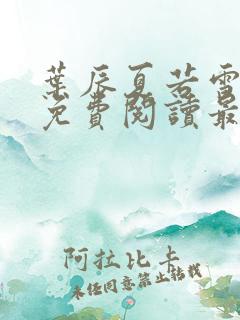 葉辰夏若雪
免費閱讀最
阿拉比卡
未經同意禁止轉載